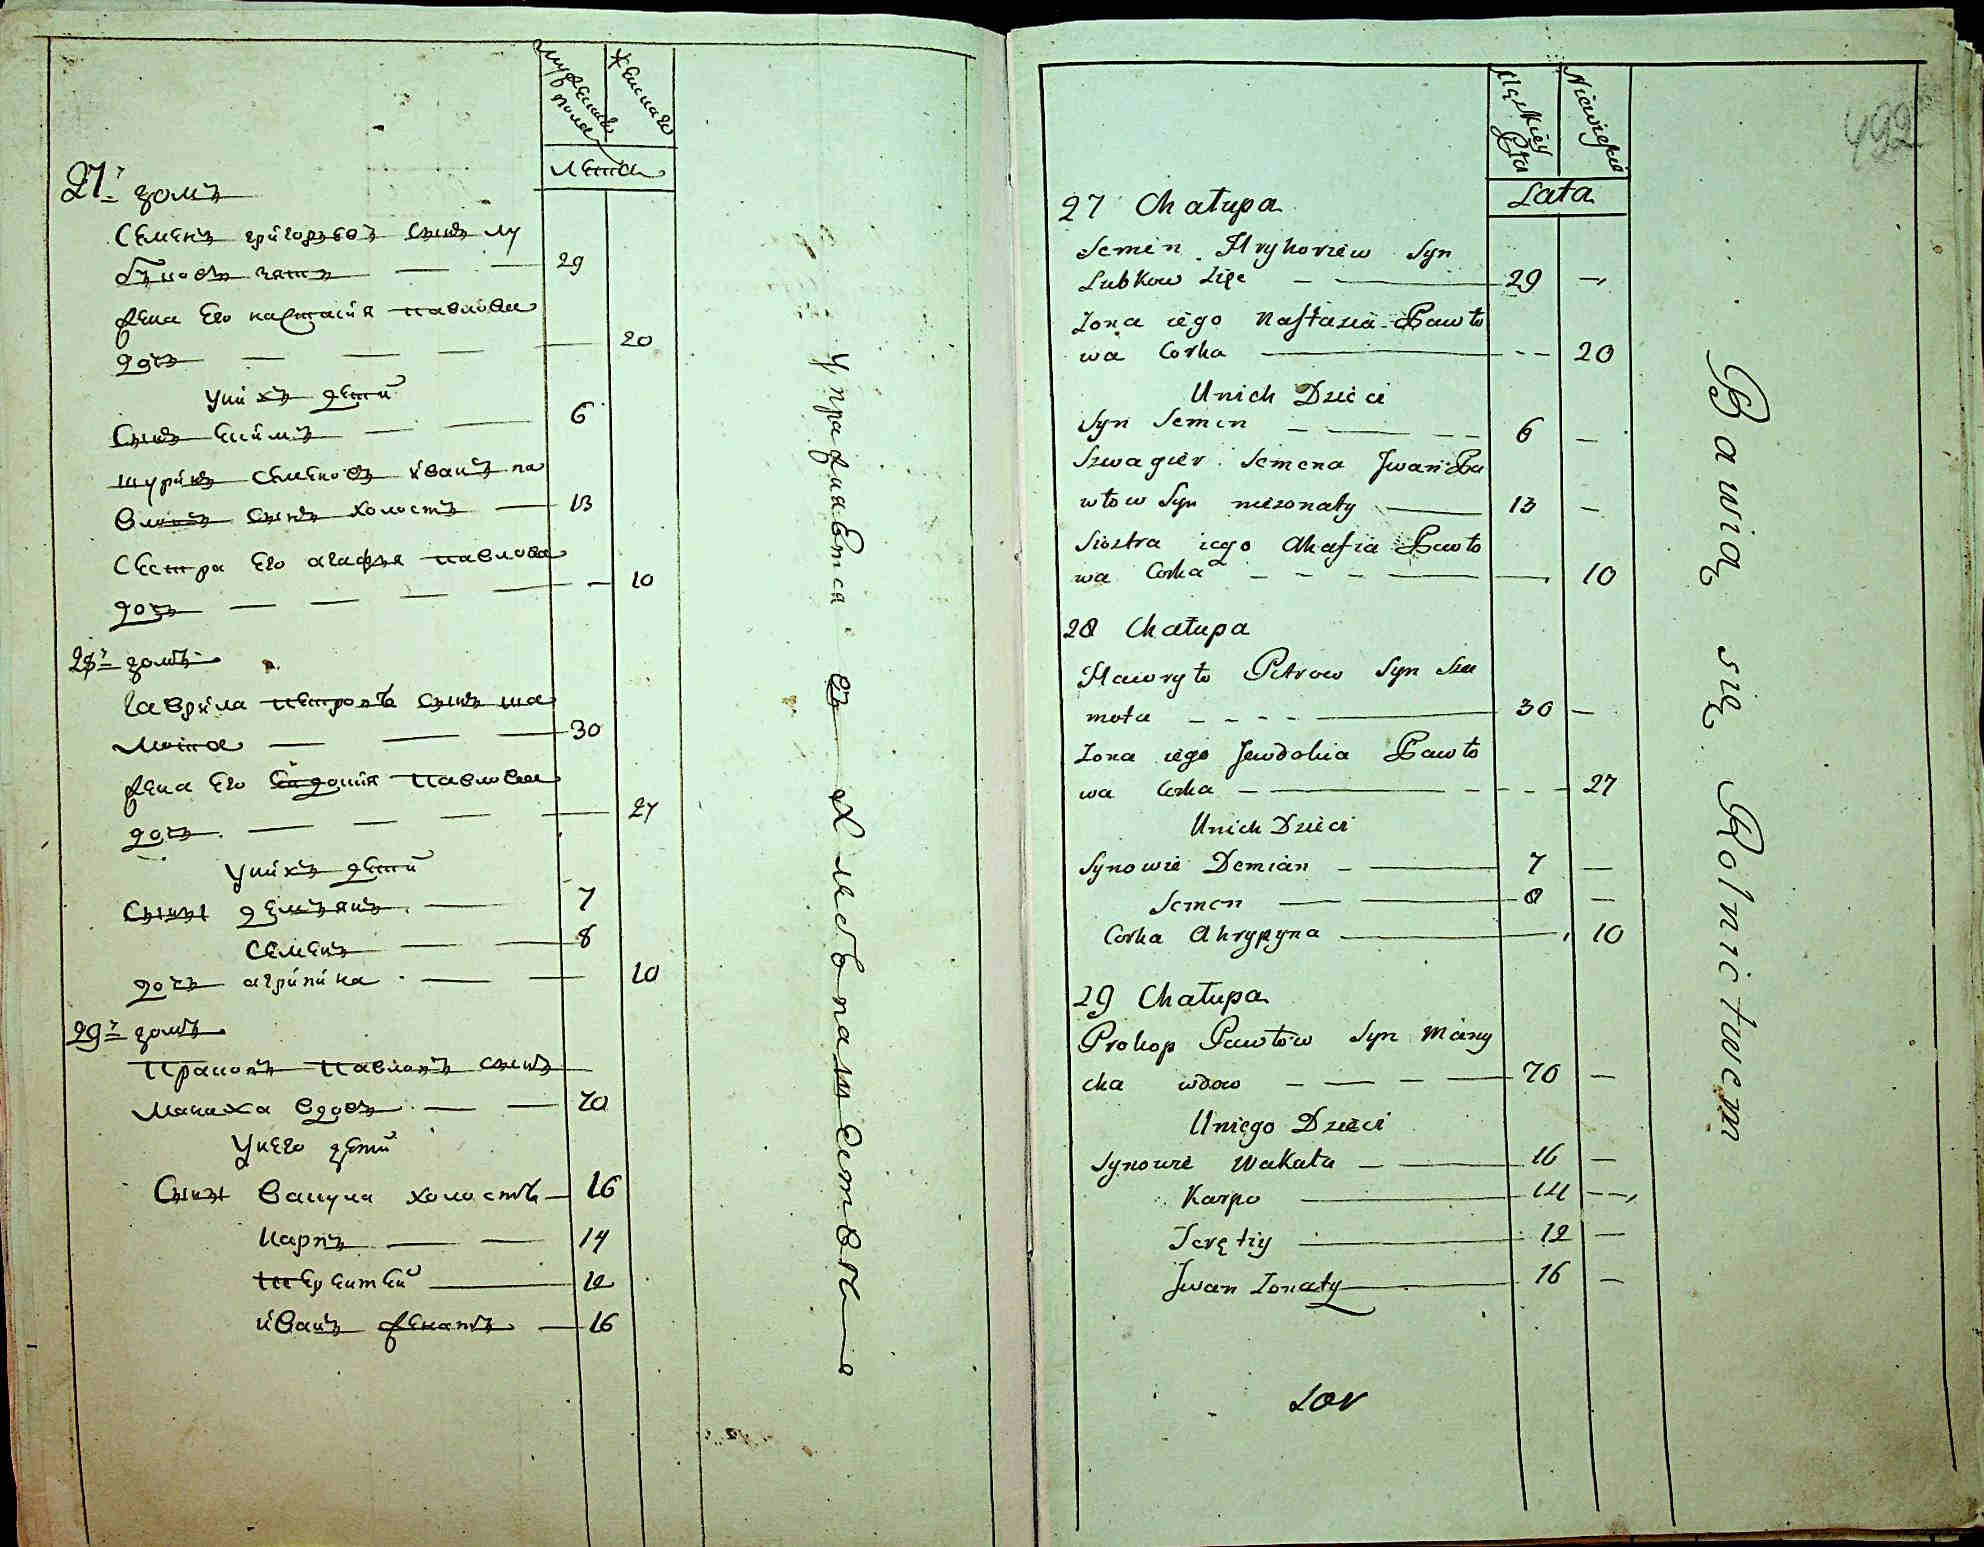 мужеска пола
женска
Лета
27й домъ
Семенъ григорьевъ сынъ лу
бковъ зять — — 29
жена его настасия павлова
дочь — — — — 20
У них дети
Сынъ — — 6
шуринъ семеновъ иванъ па
вловъ сынъ холостъ — 13
Сестра его агафья павлова
дочь — — — — 10
28й домъ
гаврила петровъ сынъ ша
мота — — — 30
жена его павлова
дочь — — — — 27
У нихъ дети
Сыны демьянъ — 7
Семенъ — — 8
дочь агрипина — — 10
29й домъ
Пракопъ Павловъ сынъ
Маниха вдовъ — — 70
У него дети
Сыны Вакула холостъ — 16
Карпъ — — 14
Терентей — 12
иванъ женатъ — 16
Упражняется въ хлебопашестве
492
Męzkiey Płci
Niewieściey
Lata
27 Chałupa
Semen Hryhoriew Syn
Lubkow Zięć — — 29 —
Zona iego Nastazia Pawło
wa Corka — — 20
Unich Dzieci
Syn Semen — — 6 —
Szwagier Semena Jwan Pa
włow Syn niezonaty — 13 —
Siostra iego Ahafia Pawło
wa Corka — — — 10
28 Chałupa
Hawryło Petrow Syn Sza
mota — — — 30 —
Zona iego Jewdokia Pawło
wa Corka — — — 27
Unich Dzieci
Synowie Demian — — 7 —
Semen — — 8 —
Corka Ahrypyna — 10
29 Chałupa
Prokop Pawłów Syn Mány
cha wdow — — — 70 —
Uniego Dzieci
Synowie Wakała — — 16 —
Karpo — 14 —
Teretiy — 12 —
Jwan Zonaty — 16 —
Bawią się Rolnictwem